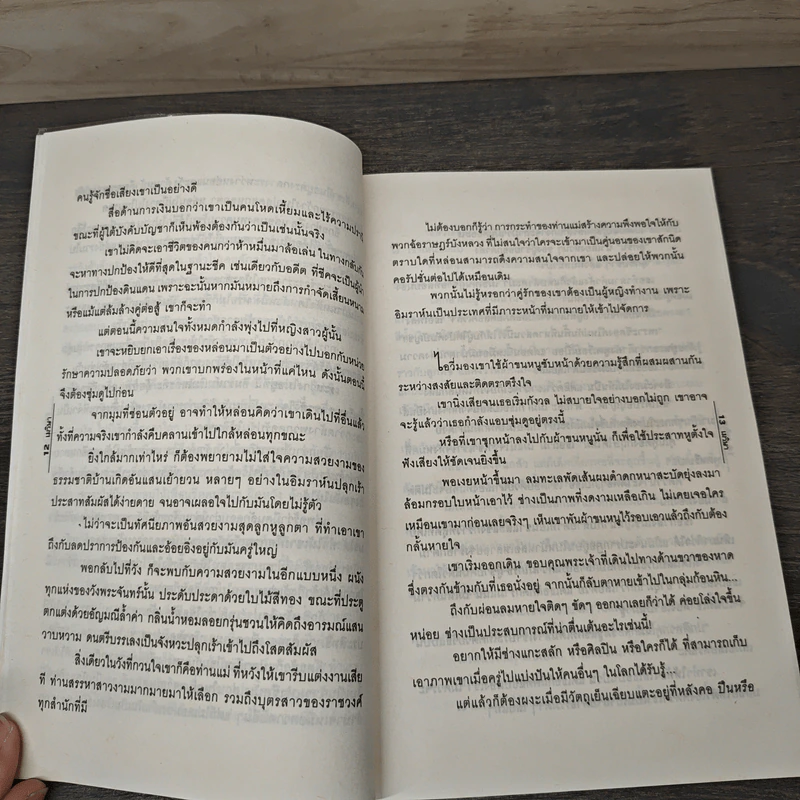 คนรู้จักชื่อเสียงเขาเป็นอย่างดี
สื่อด้านการเงินบอกว่าเขาเป็นคนโหดเหี้ยมและไร้ความปรานี
ขณะที่ผู้ใต้บังคับบัญชาก็เห็นพ้องต้องกันว่าเป็นเช่นนั้นจริง
เขาไม่คิดจะเอาชีวิตของคนกว่าห้าหมื่นมาล้อเล่น ในทางกลับกัน
จะหาทางปกป้องให้ดีที่สุดในฐานะชีค เช่นเดียวกับอดีต ที่ชีคจะเป็นผู้นำ
ในการปกป้องดินแดน เพราะฉะนั้นหากมันหมายถึงการกำจัดเสี้ยนหนาม
หรือแม้แต่ล้มล้างคู่ต่อสู้ เขาก็จะทำ
แต่ตอนนี้ความสนใจทั้งหมดกำลังพุ่งไปที่หญิงสาวผู้นั้น
เขาจะหยิบยกเอาเรื่องของหล่อนมาเป็นตัวอย่างไปบอกกับหน่วย
รักษาความปลอดภัยว่า พวกเขาบกพร่องในหน้าที่แค่ไหน ดังนั้นตอนนี้
จึงต้องซุ่มดูไปก่อน
จากมุมที่ซ่อนตัวอยู่ อาจทำให้หล่อนคิดว่าเขาเดินไปที่อื่นแล้ว
ทั้งที่ความจริงเขากำลังคืบคลานเข้าไปใกล้หล่อนทุกขณะ
ยิ่งใกล้มากเท่าไหร่ ก็ต้องพยายามไม่ใส่ใจความสวยงามของ
ธรรมชาติบ้านเกิดอันแสนเย้ายวน หลายๆ อย่างในอิมราห์นปลุกเร้า
ประสาทสัมผัสได้ง่ายดาย จนอาจเผลอใจไปกับมันโดยไม่รู้ตัว
ไม่ว่าจะเป็นทัศนียภาพอันสวยงามสุดลูกหูลูกตา ที่ทำเอาเขา
ถึงกับลดปราการป้องกันและอ้อยอิ่งอยู่กับมันครู่ใหญ่
พอกลับไปที่วัง ก็จะพบกับความสวยงามในอีกแบบหนึ่ง ผนัง
ทุกแห่งของวังพระจันทร์นั้น ประดับประดาด้วยใบไม้สีทอง ขณะที่ประตู
ตกแต่งด้วยอัญมณีล้ำค่า กลิ่นน้ำหอมลอยกรุ่นชวนให้คิดถึงอารมณ์แสน
วาบหวาม ดนตรีบรรเลงเป็นจังหวะปลุกเร้าเข้าไปถึงโสตสัมผัส
สิ่งเดียวในวังที่กวนใจเขาก็คือท่านแม่ ที่หวังให้เขารีบแต่งงานเสีย
ที ท่านสรรหาสาวงามมากมายมาให้เลือก รวมถึงบุตรสาวของราชวงศ์
ทุกสำนักที่มี
12
ไม่ต้องบอกก็รู้ว่า การกระทำของท่านแม่สร้างความพึงพอใจให้กับ
พวกฉ้อราษฎร์บังหลวง ที่ไม่สนใจว่าใครจะเข้ามาเป็นคู่นอนของเขาสักนิด
ตราบใดที่หล่อนสามารถดึงความสนใจจากเขา และปล่อยให้พวกนั้น
คอรัปชั่นต่อไปได้เหมือนเดิม
พวกนั้นไม่รู้หรอกว่าคู่รักของเขาต้องเป็นผู้หญิงทำงาน เพราะ
อิมราห์นเป็นประเทศที่มีภาระหน้าที่มากมายให้เข้าไปจัดการ
ไอวี่มองเขาใช้ผ้าขนหนูซับหน้าด้วยความรู้สึกที่ผสมผสานกัน
ระหว่างสงสัยและติดตราตรึงใจ
เขานิ่งเสียจนเธอเริ่มกังวล ไม่สบายใจอย่างบอกไม่ถูก เขาอาจ
จะรู้แล้วว่าเธอกำลังแอบซุ่มดูอยู่ตรงนี้
หรือที่เขาซุกหน้าลงไปกับผ้าขนหนูนั่น ก็เพื่อใช้ประสาทหูตั้งใจ
ฟังเสียงให้ชัดเจนยิ่งขึ้น
พอเงยหน้าขึ้นมา ลมทะเลพัดเส้นผมดำดกหนาสะบัดยุ่งลงมา
ล้อมกรอบใบหน้าเอาไว้ ช่างเป็นภาพที่งดงามเหลือเกิน ไม่เคยเจอใคร
เหมือนเขามาก่อนเลยจริงๆ เห็นเขาพันผ้าขนหนูไว้รอบเอวแล้วถึงกับต้อง
กลั้นหายใจ
เขาเริ่มออกเดิน ขอบคุณพระเจ้าที่เดินไปทางด้านขวาของหาด
ซึ่งตรงกันข้ามกับที่เธอนั่งอยู่ จากนั้นก็ลับตาหายเข้าไปในกลุ่มก้อนหิน...
ถึงกับผ่อนลมหายใจติดๆ ขัดๆ ออกมาเลยก็ว่าได้ ค่อยโล่งใจขึ้น
หน่อย ช่างเป็นประสบการณ์ที่น่าตื่นเต้นอะไรเช่นนี้!
อยากให้มีช่างแกะสลัก หรือศิลปิน หรือใครก็ได้ ที่สามารถเก็บ
เอาภาพเขาเมื่อครู่ไปแบ่งปันให้คนอื่นๆ ในโลกได้รับรู้...
แต่แล้วก็ต้องผงะเมื่อมีวัตถุเย็นเฉียบแตะอยู่ที่หลังคอ ปืนหรือ
13